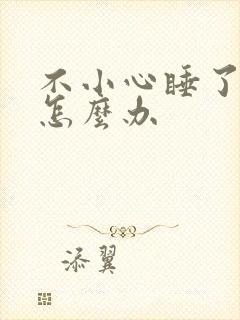 不小心睡了
怎麼办
添翼